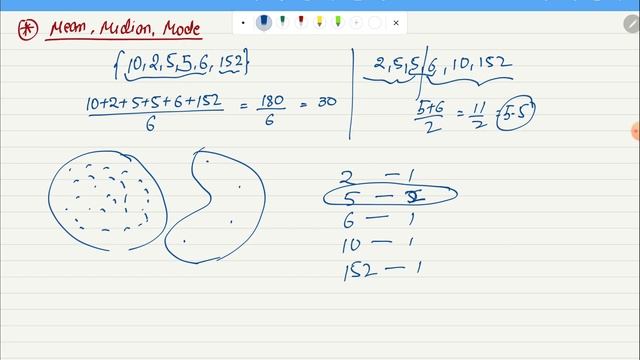 * Mean, Median, Mode
{10,2,5,5,6,152}
10+2+5+5+6+152 / 6 = 180 / 6 = 30
2,5,5,6,10,152
5+6 / 2 = 11 / 2 = 5.5
2 — 1
5 — 2
6 — 1
10 — 1
152 — 1